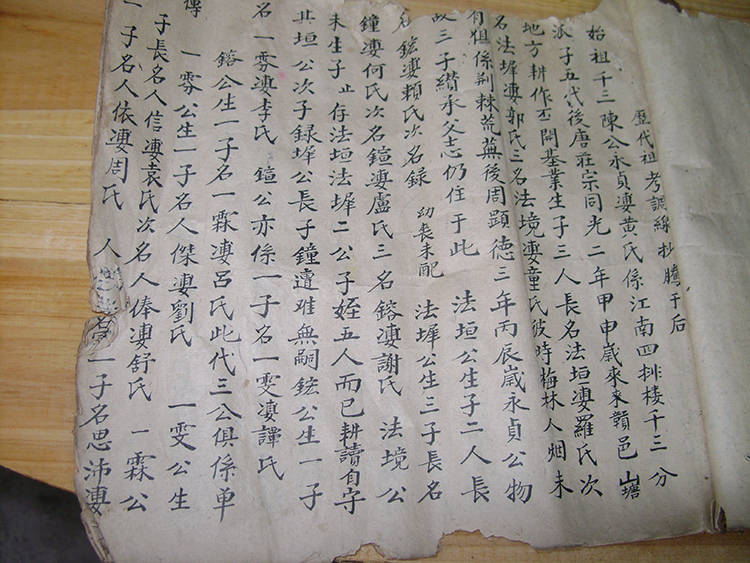 歷代祖考調線抄騰于后
始祖千三陳公永貞凄黃氏係江南四排楼千三分
派子五代後唐莊宗同光二年甲申歲來贛邑山塘
地方耕作丕開基業生子三人長名法垣凄羅氏次
名法墀凄郭氏三名法境凄童氏彼時梅林人烟未
有狙係荆棘荒蕪後周顕德三年丙辰歲永貞公物
故三子纘承父志仍住于此 法垣公生子二人長
名鋐凄賴氏次名録 幼丧未配 法墀公生三子長名
鐘凄何氏次名鍹凄盧氏三名鎔凄謝氏 法境公
未生子止存法垣法墀二公子姪五人而已耕讀自守
其垣公次子録墀公長子鐘遭难無嗣鋐公生一子
名一雰凄李氏 鍹公亦係一子名一雯凄譚氏
鎔公生一子名一霖凄呂氏此代三公俱係单
傳
一雰公生一子名人傑凄劉氏 一雯公生
子長名人信凄袁氏次名人俸凄舒氏 一霖公
一子名人依凄周氏 人 一子名思沛凄